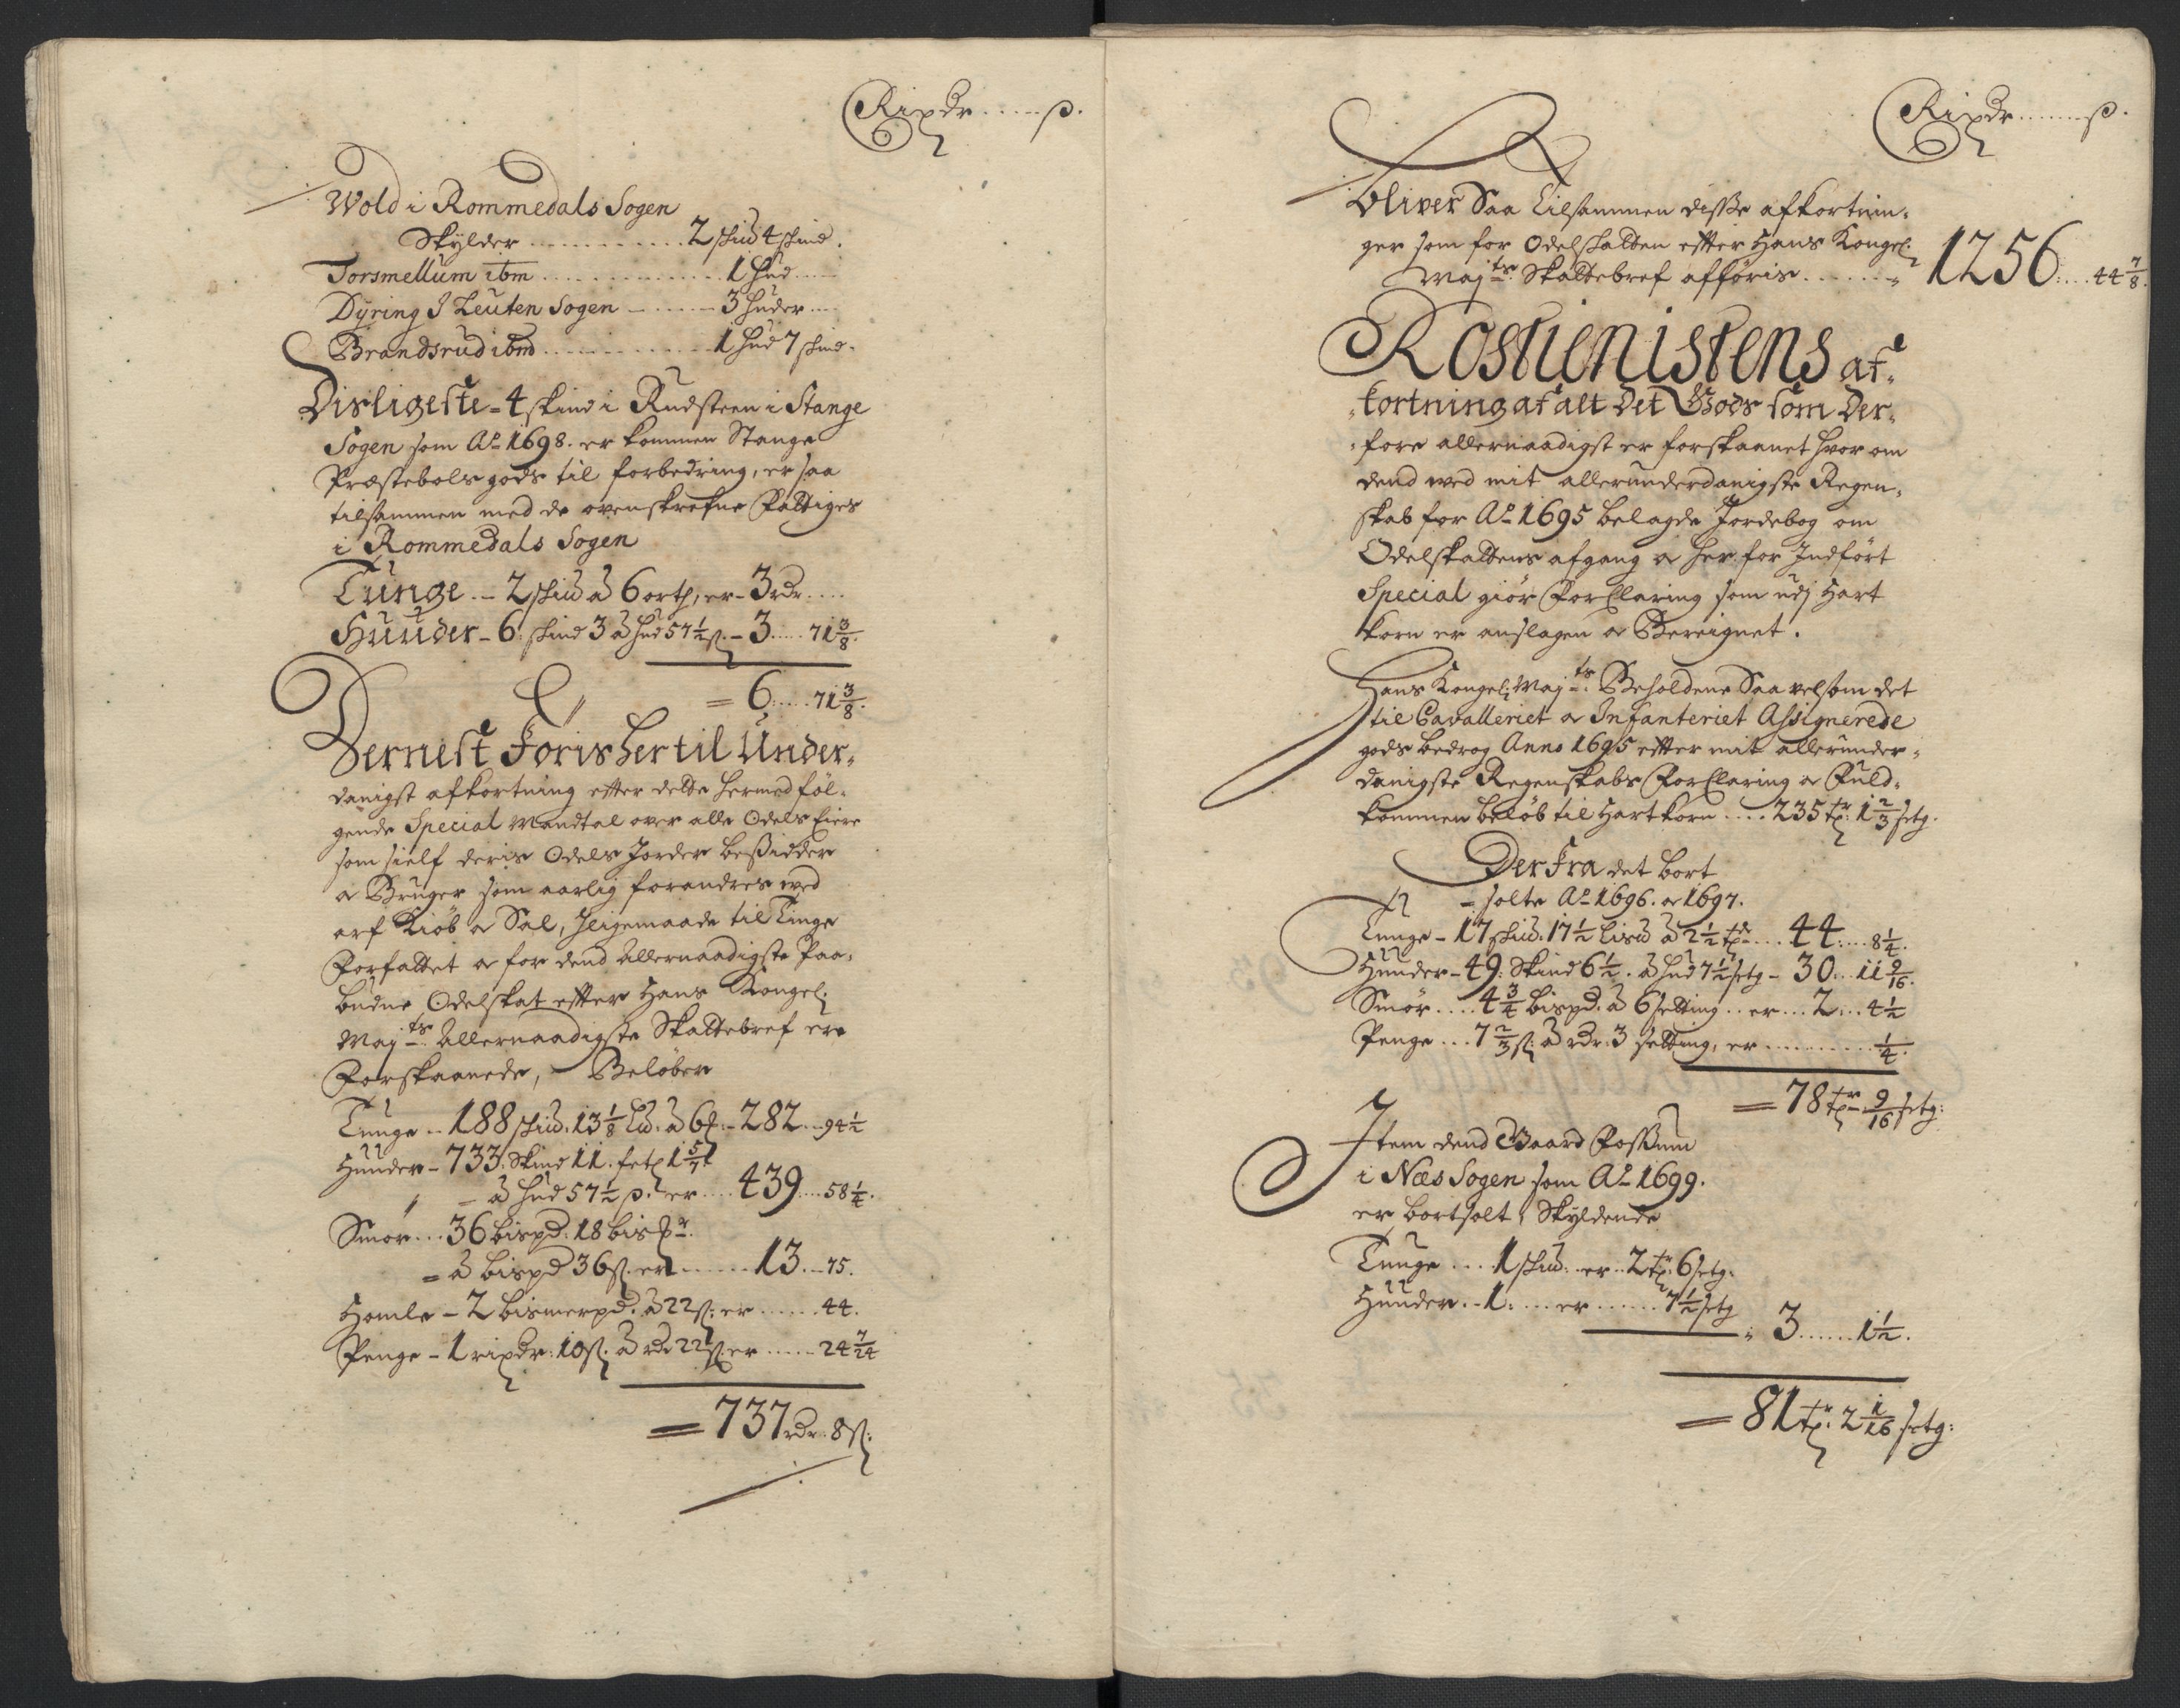 Rixdr ..... ß.
Wold i Rommedals Sogen
Skylder ............ 2 skind 4 skind.
Torsmellum ibm ............ 1 hud ....
Dyring I Leuten Sogen ........ 3 huder ...
Brandsrud ibm ............ 1 hud 7 skind.
Disligeste = 4 skind i Rudsteen i Stange
Sogen som Ao 1698. er kommen Stange
Præstebols gods til forbedring, er saa
tilsammen med de ovenskrefne Fattiges
i Rommedals Sogen
Tunge .. 2 skud à 6 ortp, er - 3 rdr ....
Huuder - 6: skind 3 à hud 57½ ß. - 3 ..... 71 3/8.
= 6 ..... 71 3/8.
Dernest Føris hertil Under-
danigst afkortning efter dette hermed føl-
gende Special Mandtal over alle Odels Eiere
som sielf deris Odels Jorder besidder
og Bruger som aarlig forandres ved
arf Kiøb og Sal, iligemaade til Tinge
Forfattet og for dend Allernaadigste Paa-
budne Odelskat efter Hans Kongel:
Majts: Allernaadigste Skattebref ere
Forskaanede, Beløber
Tunge .. 188 skud. 13 1/8 Lid. à 6 - 282 ... 94½
Huuder - 733. Skind 11. fetp 1 5/7
à hud 57½ ß. er .... 439 .... 58¼.
Smør ... 36 bispd. 18 bismr.
= à bispd 36 ß. er ...... 13 ... 75.
Homle - 2 bismerpd. à 22 ß. er ...... 44.
Penge - 1 rixdr: 10 ß. à rdr 22 ß er ..... 24 7/24
= 737 rdr. 8 ß:
Rixdr ....... ß.
Bliver Saa Tilsammen disse afkortnin-
ger som for Odelskatten efter Hans Kongel:
Majts. Skattebref afføris ....... 1256 .... 44 7/8.
Rostienistens af-
kortning af alt Det Gods som Der-
fore allernaadigst er forskaanet hvor om
dend ved mit allerunderdanigste Regen-
skab for Ao 1695 belagde Jordebog om
Odelskattens afgang og her for Indført
Special giør Forklaring som udj Hart
korn er anslagen og Bereignet.
Hans Kongel: Majts: Beholdene Saavelsom det
til Cavalleriet og Infanteriet Assignerede
gods bedrog Anno 1695 efter mit allerunder-
danigste Regenskabs Forklaring og Fuld-
kommen beløb til Hartkorn .... 235 tr: 1 2/3 setg.
Der Fra det bort
= solte Ao 1696. og 1697.
Tunge - 17 skud. 17½ Lisd à 2½ tdr .... 44 .... 8¼.
Huuder - 49. Skind 6½. à hud 7½ setg - 30 ... 11 9/16.
Smør .... 4¾ bispd. à 6 setting .. er ... 2 ... 4½
Penge ... 7 2/3 ß. à rdr. 3 setting, er .......... ¼.
= 78 tr: 9/16 setg:
Item dend Gaard Fossum
i Næs Sogen som Ao 1699.
er bortsolt, Skyldende
Tunge ... 1 skud. er .. 2 tr. 6 setg.
Huuder .. 1. ... er ...... 7½ setg
= 3 ...... 1½.
= 81 tr. 2 1/16 setg: